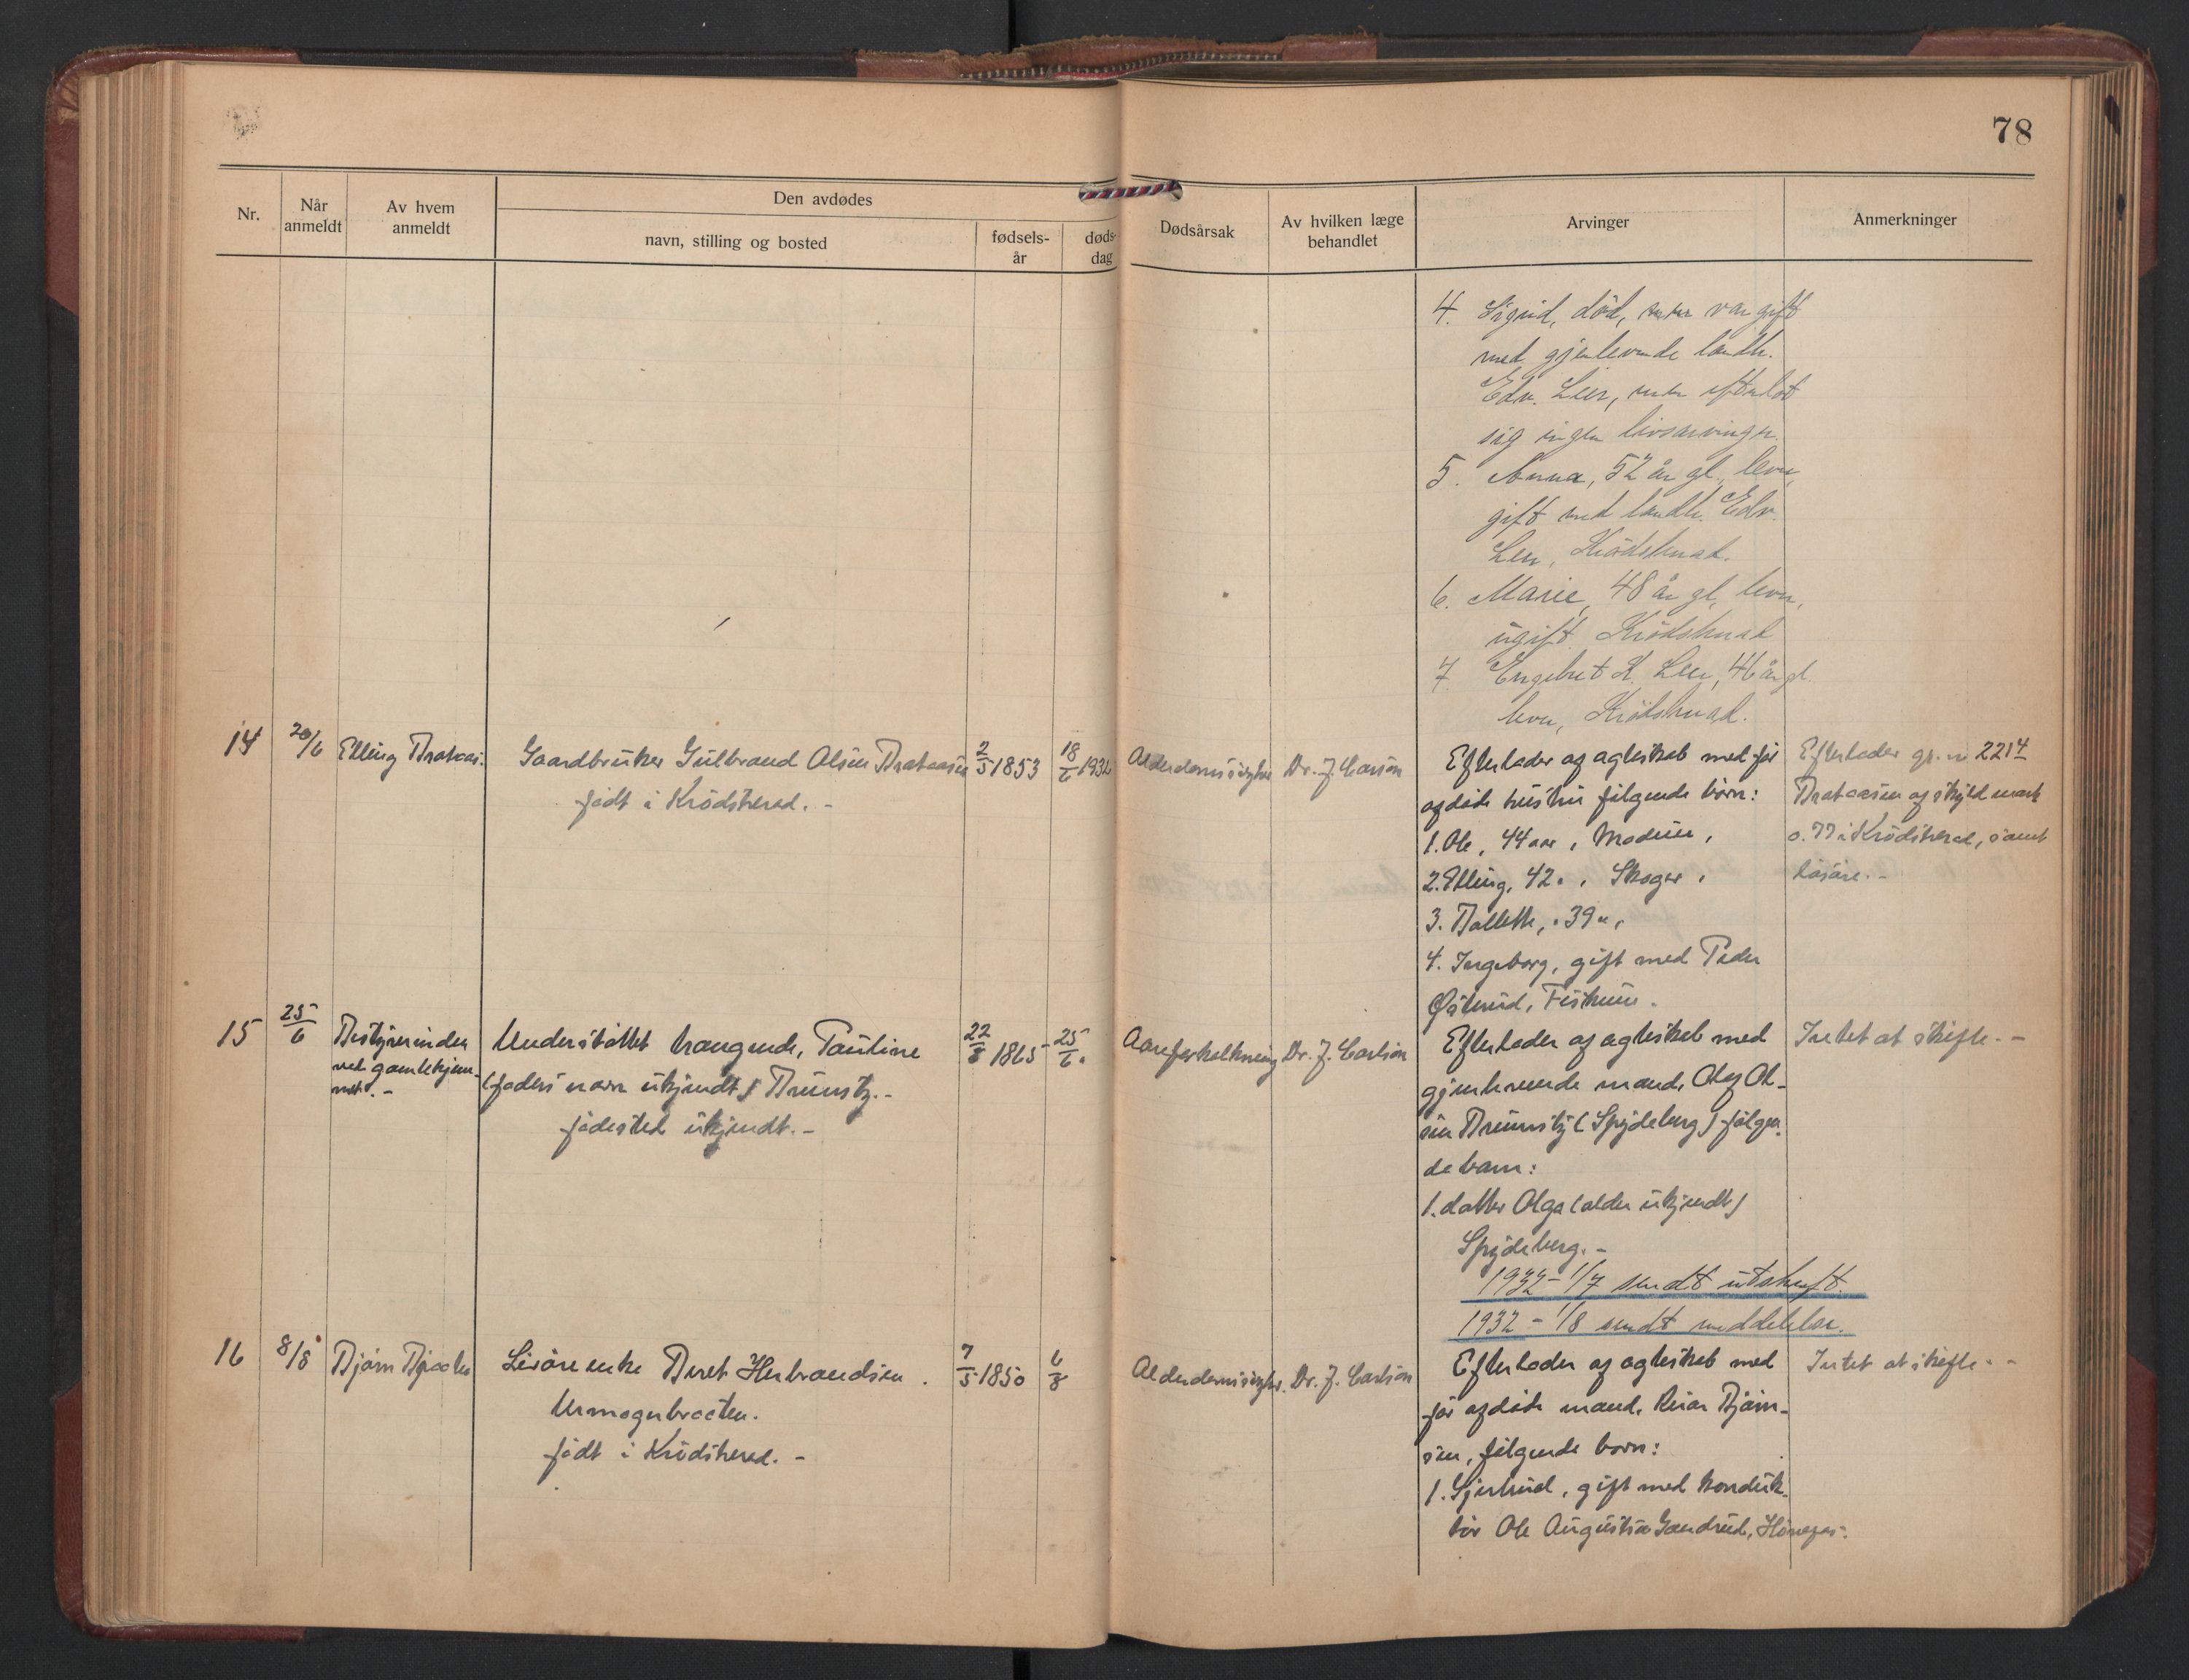 78
Nr.
Når
anmeldt
Av hvem
anmeldt
Den avdødes
navn, stilling og bosted
fødsels-
år
døds-
dag
Dødsårsak
Av hvilken læge
behandlet
Arvinger
Anmerkninger
4. Sigrid, död, som var gift
med gjenlevende landh.
Edv. Leer, men efterlot
sig ingen livsarvinger.
5. Anna, 52 år gl., lever,
gift med landh. Edv.
Leer, Krödsherad.
6. Marie, 48 år gl, lever,
ugift, Krödsherad
7. Engebret K. Leer, 46 år gl.
lever, Krödsherad.
14
20/6
Elling Brataas.
Gaardbruker Gulbrand Olsen Brataasen
födt i Krödsherad. -
2/5 1853
18/6 1932
Alderdomssvaghet
Dr. J. Carlson
Efterlader af egteskab med før
afdøde hustru følgende børn:
1. Ole, 44 aar, Modum,
2. Elling, 42 ", Skoger,
3. , 39 ",
4. Ingeborg, gift med Peder
Østerud, Fiskum.
Efterlader gr. nr 22 14
Brataasen af skyld mark
0.77 i Krödsherad, samt
løsøre. -
15
25/6
Bestyrerinden
ved gamlehjem-
met. -
Understøttet trængende, Pauline
(faders navn ukjendt) . -
fødested ukjendt. -
22/8 1865
25/6.
Aareforkalkning
Dr. J. Carlson
Efterlader af egteskab med
gjenlevende mand, Olaf Ol-
sen (Spydeberg) følgen-
de barn:
1. datter Olga (alder ukjendt)
Spydeberg. -
1932 - 1/7 sendt utskrift.
1932 - 1/8 sendt meddelelse.
Intet at skifte. -
16
8/8
Bjørn
enke Beret Herbrandsen.
födt i Krödsherad. -
7/5 1850
6/8
Alderdomssvaghet.
Dr. J. Carlson
Efterlader af egteskab med
før afdøde mand, Bjørn-
sen, følgende børn:
1. Gjertrud, gift med konduk-
tør Ole August Gandrud, Hønefos.
Intet at skifte. -